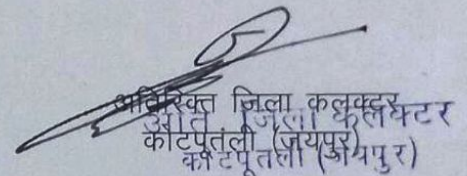 अतिरिक्त जिला कलक्टर
अति जिला कलेक्टर
कोटपूतली (जयपुर)
कोटपूतली (जयपुर)